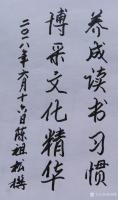 养成读书习惯
博采文化精华
二〇一八年六月十六日陈祖松撰